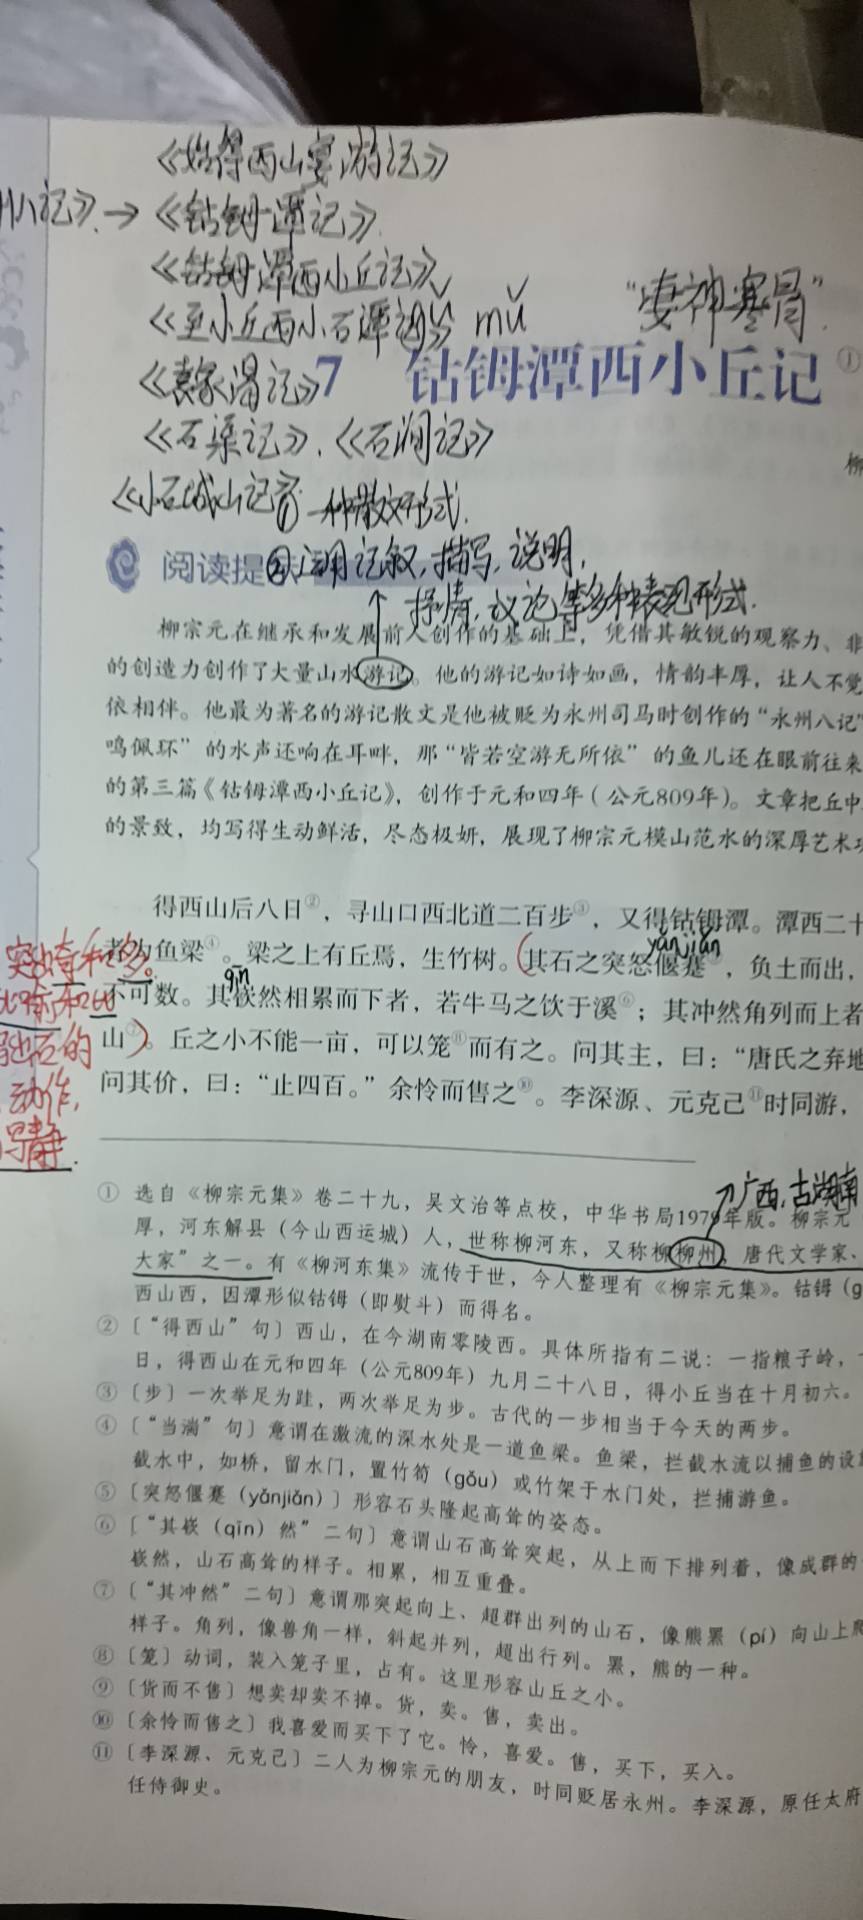 《始得西山宴游记》
八记》→《钴鉧潭记》
《钴鉧潭西小丘记》
《至小丘西小石潭记》 mǔ
"凄神寒骨".
《袁家渴记》
7 钴鉧潭西小丘记 ①
《石渠记》、《石涧记》
柳
《小石城山记》
①一种散文形式.
阅读提
②运用记叙,描写,说明,
抒情,议论等多种表现形式.
柳宗元在继承和发展前人创作的基础上，凭借其敏锐的观察力、非
的创造力创作了大量山水游记。他的游记如诗如画，情韵丰厚，让人不觉
依相伴。他最为著名的游记散文是他被贬为永州司马时创作的“永州八记”
鸣佩环”的水声还响在耳畔，那“皆若空游无所依”的鱼儿还在眼前往来
的第三篇《钴鉧潭西小丘记》，创作于元和四年（公元809年）。文章把丘中
的景致，均写得生动鲜活，尽态极妍，展现了柳宗元模山范水的深厚艺术功
得西山后八日②，寻山口西北道二百步③，又得钴鉧潭。潭西二十
yǎnjiǎn
者为鱼梁④。梁之上有丘焉，生竹树。（其石之突怒偃蹇⑤，负土而出，
qīn
不可数。其嵚然相累而下者，若牛马之饮于溪⑥；其冲然角列而上者
山⑦）。丘之小不能一亩，可以笼⑧而有之。问其主，曰：“唐氏之弃地
问其价，曰：“止四百。”余怜而售之⑩。李深源、元克己⑪时同游，
突出奇和多。
石的
动作,
写静.
↗广西,古湖南
① 选自《柳宗元集》卷二十九，吴文治等点校，中华书局1979年版。柳宗元
厚，河东解县（今山西运城）人，世称柳河东，又称柳柳州，唐代文学家、
大家”之一。有《柳河东集》流传于世，今人整理有《柳宗元集》。钴鉧（g
西山西，因潭形似钴鉧（即熨斗）而得名。
② 〔“得西山”句〕西山，在今湖南零陵西。具体所指有二说：一指粮子岭，
日，得西山在元和四年（公元809年）九月二十八日，得小丘当在十月初六。
③ 〔步〕一次举足为跬，两次举足为步。古代的一步相当于今天的两步。
④ 〔“当湍”句〕意谓在激流的深水处是一道鱼梁。鱼梁，拦截水流以捕鱼的设
截水中，如桥，留水门，置竹笱（gǒu）或竹架于水门处，拦捕游鱼。
⑤ 〔突怒偃蹇（yǎnjiǎn）〕形容石头隆起高耸的姿态。
⑥ 〔“其嵚（qīn）然”二句〕意谓山石高耸突起，从上而下排列着，像成群的
嵚然，山石高耸的样子。相累，相互重叠。
⑦ 〔“其冲然”二句〕意谓那突起向上、超群出列的山石，像熊罴（pí）向山上爬
样子。角列，像兽角一样，斜起并列，超出行列。罴，熊的一种。
⑧ 〔笼〕动词，装入笼子里，占有。这里形容山丘之小。
⑨ 〔货而不售〕想卖却卖不掉。货，卖。售，卖出。
⑩ 〔余怜而售之〕我喜爱而买下了它。怜，喜爱。售，买下，买入。
⑪ 〔李深源、元克己〕二人为柳宗元的朋友，时同贬居永州。李深源，原任太府
任侍御史。